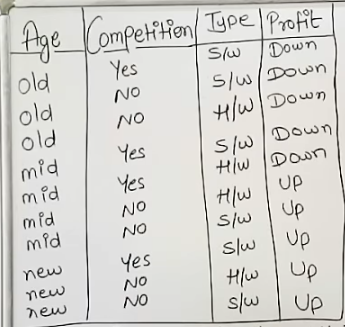 Age Competition Type Profit
old Yes S/W Down
old NO S/W Down
old NO H/W Down
mid Yes S/W Down
mid Yes H/W Down
mid NO H/W UP
mid NO S/W UP
new Yes S/W UP
new NO H/W Up
new NO S/W Up